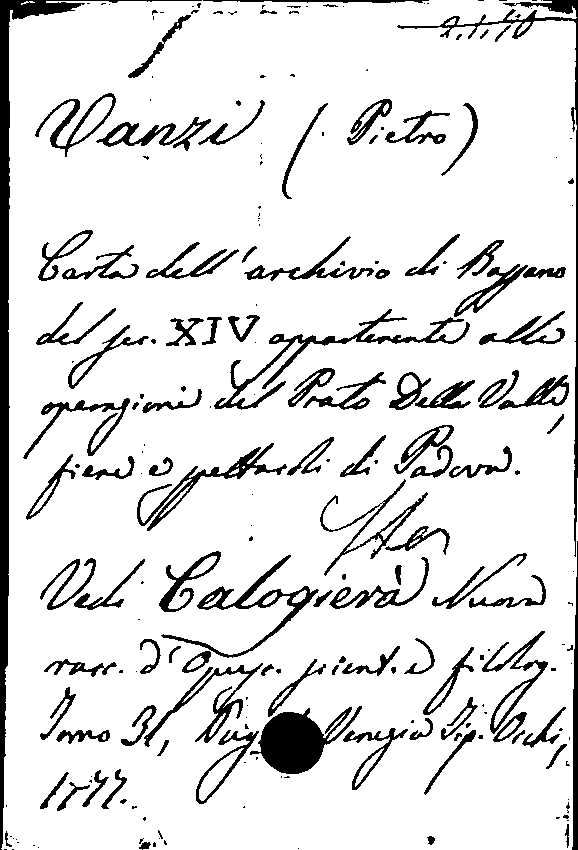 2.1.70
Vanzi (Pietro)
Carta dell'archivio di Bassano
del sec. XIV appartenente alle
operazioni del Prato Della Valle,
fiere e spettacoli di Padova.
Sta
Vedi Calogierà Nuova
racc. d'Opusc. scient. e filolog.
Tomo 31, Venezia Tip. Occhi,
1777.